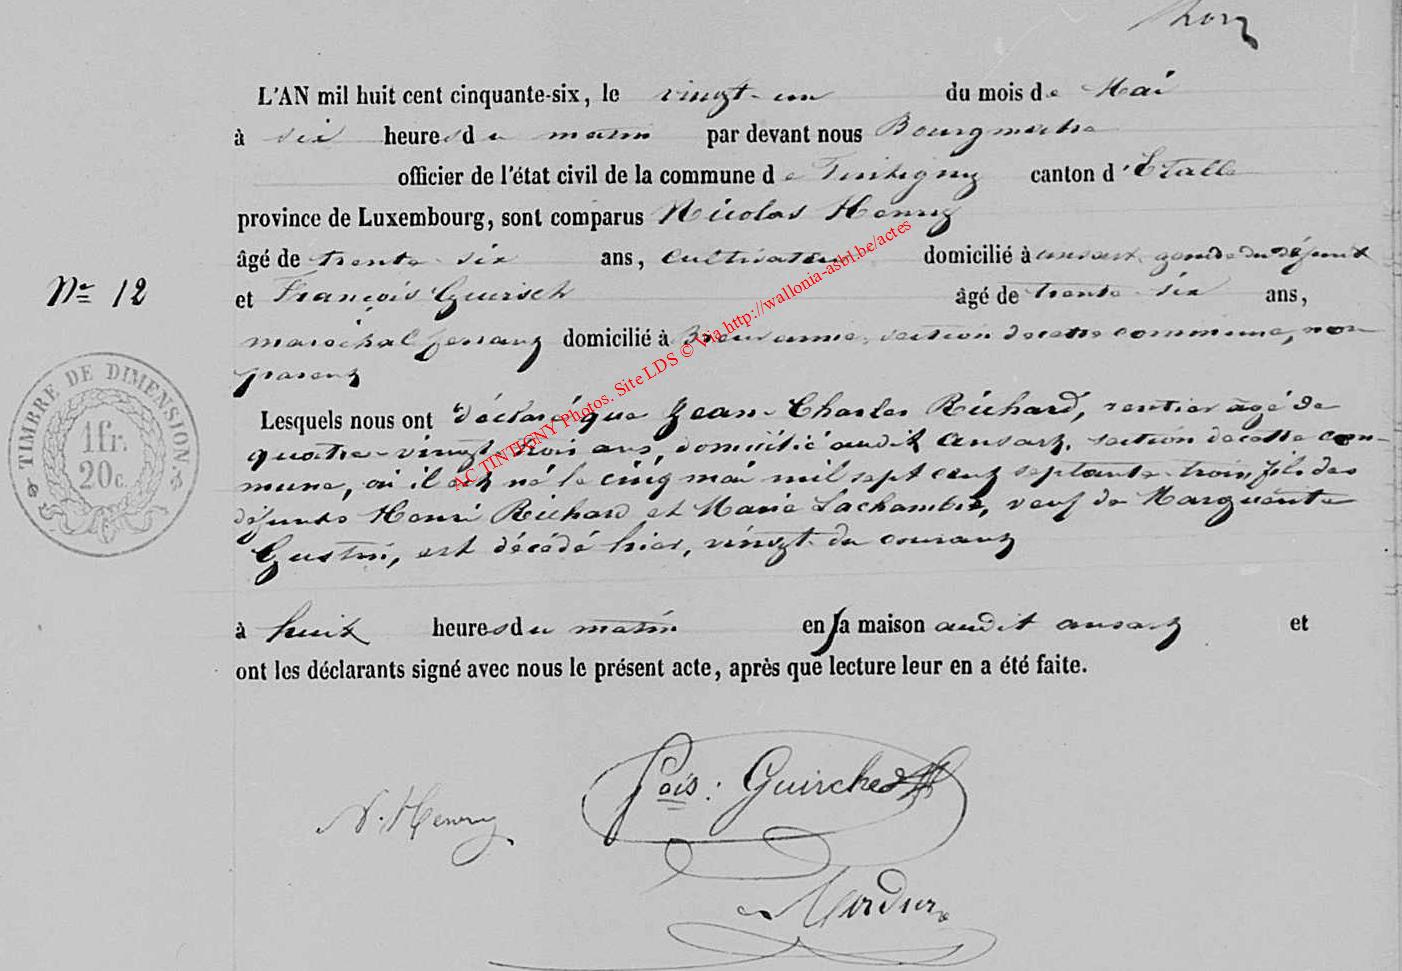 L'AN mil huit cent cinquante-six, le vingt-un du mois de Mai
à six heures du matin par devant nous Bourgmestre
officier de l'état civil de la commune de Tintigny canton d'Etalle
province de Luxembourg, sont comparus Nicolas Henry
âgé de trente-six ans, cultivateur domicilié à ansart, gendre du défunt
N° 12
et François Guirsch âgé de trente-six ans,
maréchal ferrant domicilié à Breuvanne, section de cette commune, non
parent
TIMBRE DE DIMENSION.
1 fr.
20 c.
Lesquels nous ont déclaré que Jean-Charles Richard, rentier âgé de
quatre-vingt-trois ans, domicilié audit ansart, section de cette com-
mune, où il est né le cinq mai mil sept cent septante-trois, fils des
défunts Henri Richard et Marie Lachambre, veuf de Marguerite
Gustin, est décédé hier, vingt du courant
à huit heures du matin en sa maison audit ansart et
ont les déclarants signé avec nous le présent acte, après que lecture leur en a été faite.
N. Henry
Fois: Guirche
AC TINTIGNY Photos. Site LDS © Via http://wallonia-asbl.be/actes